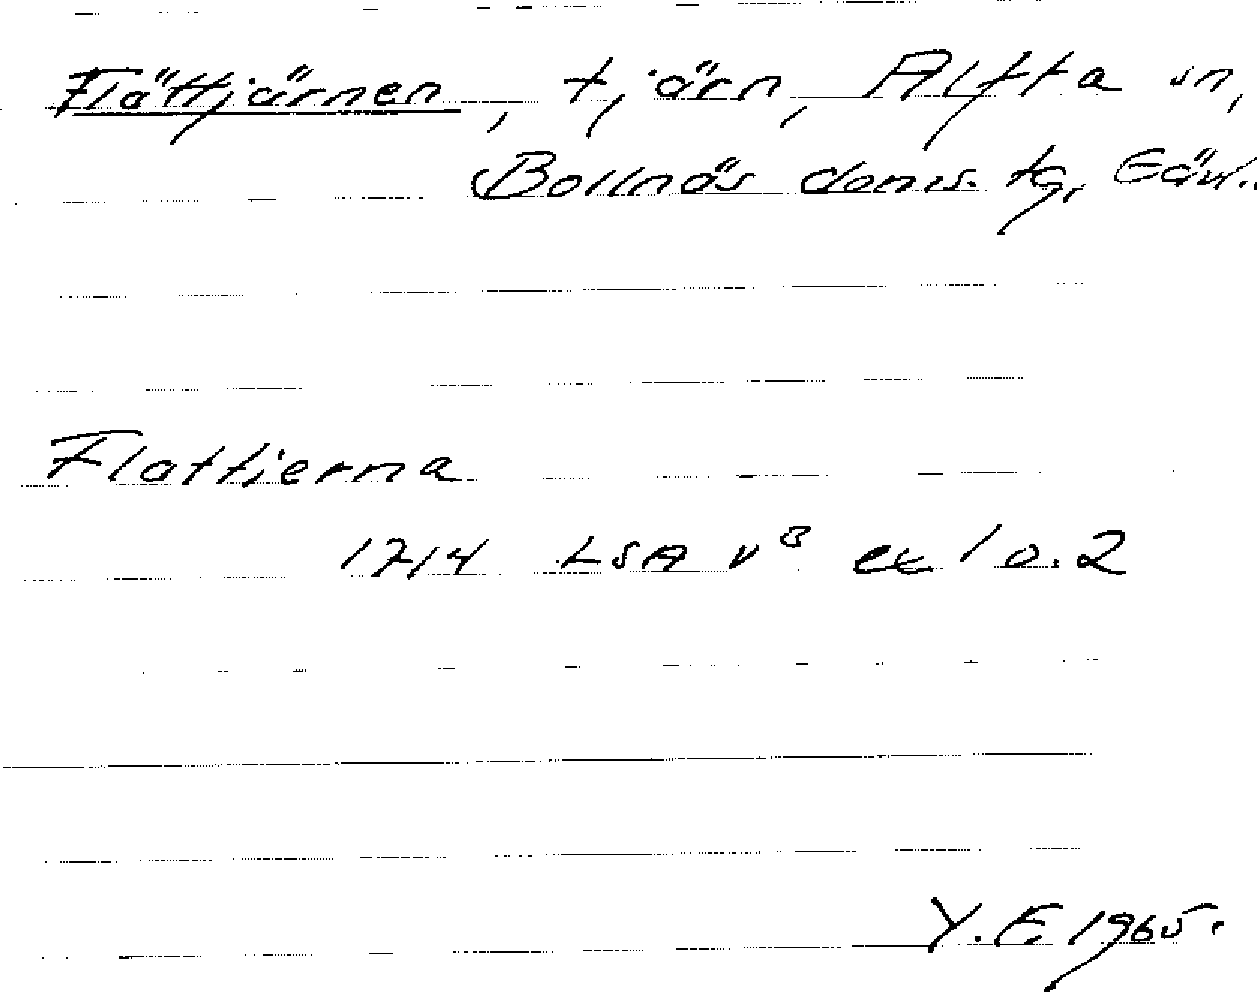 Flättjärnen, tjärn, Alfta sn,
Bollnäs doms. tg, Gävl.
Flattjerna
1714 LSA V⁸ ex 1 o. 2
Y. F. 1965.